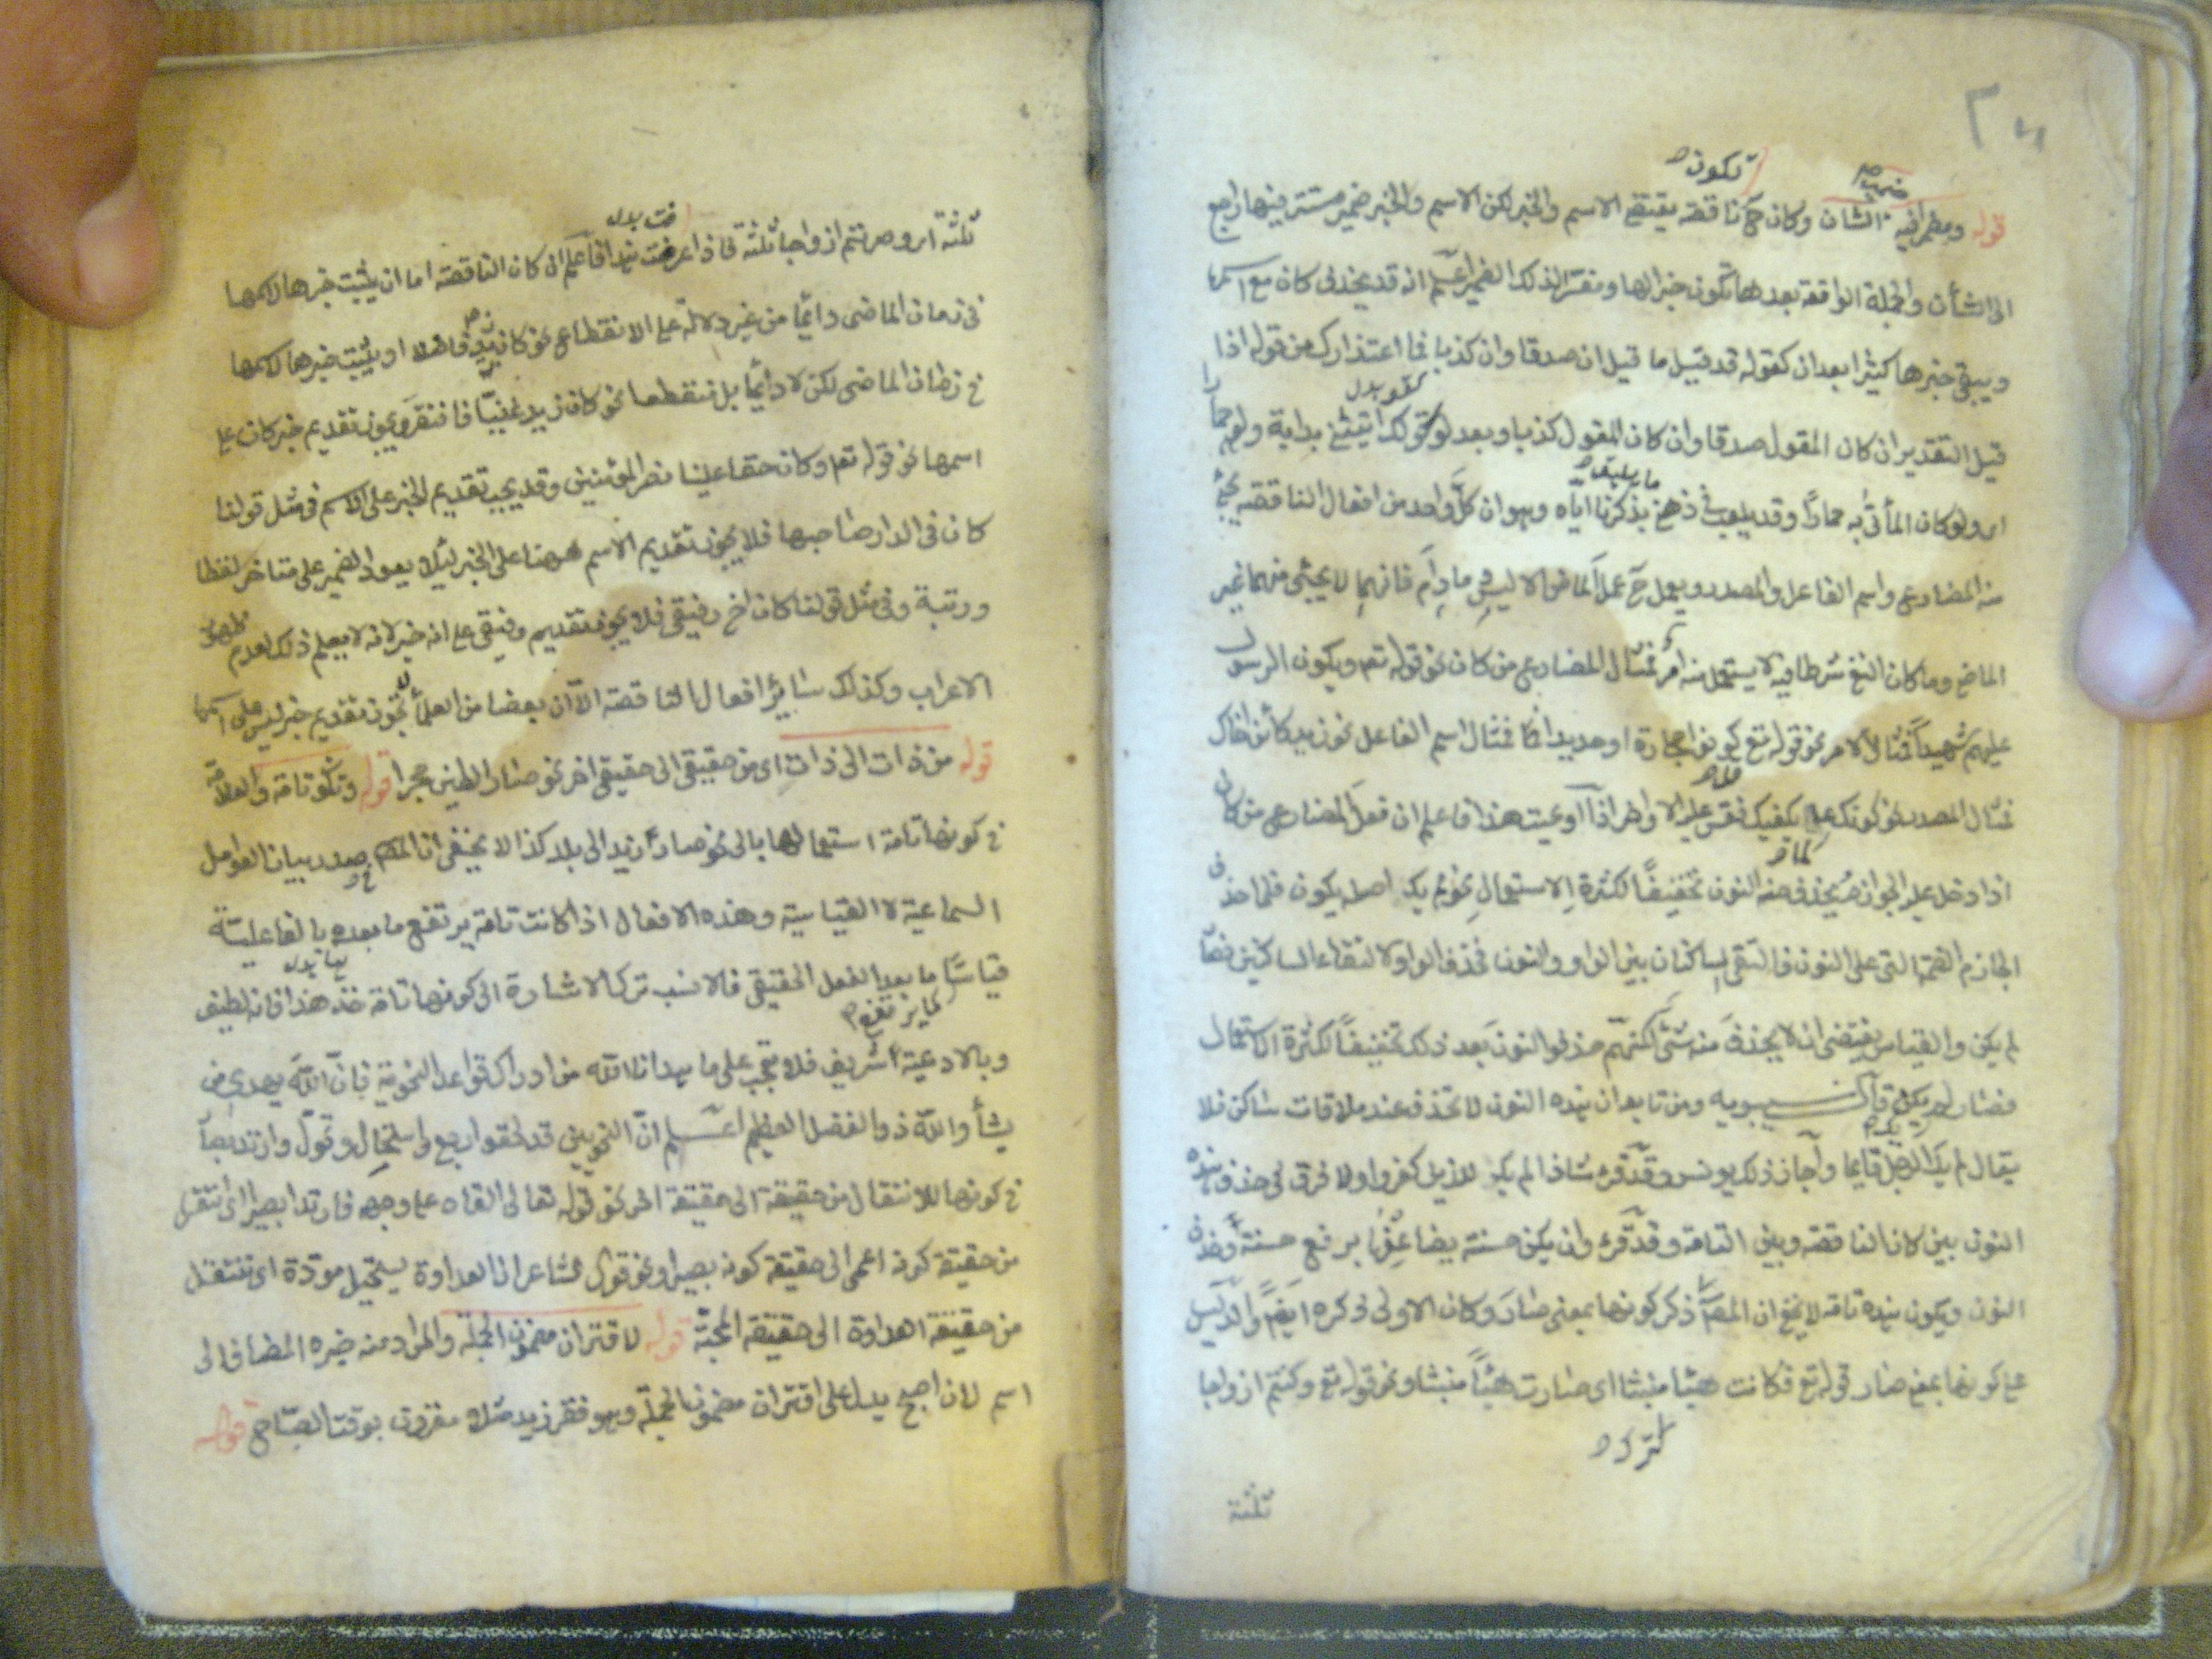 تكون
ضمير
قوله ومضمرا فيه الشان وكان ح ناقصه يقتضى الاسم والخبر لكن الاسم والخبر ضمير مستتر فيها راجع
الى الشأن والجملة الواقعة بعدها تكون خبرا لها ومفسرا لذلك الضمير اعلم انه قد يحذف كان مع اسمها
ويبقى خبرها كثيرا بعد ان كقوله قد قيل ما قيل ان صدقا وان كذبا فما اعتذارك من قول اذا
قيل التقدير ان كان المقول صدقا وان كان المقول كذبا وبعد لو كقولك ايتنى بدابة ولو حمارا
اى ولو كان المأتى به حمارا وقد يليق فى ذهنى بذكرنا اياه وهو ان كل واحد من افعال الناقصه يجئ
منه المضارع واسم الفاعل والمصدر ويعمل ح عمل الماضى الا ليس ما دام فانهما لا يجئ منهما غير
الماضى وما كان النفى شرطا فيه لا يستعمل منه امر فمثال المضارع من كان نحو قوله تعم ويكون الرسول
عليهم شهيدا فمثال الامر نحو قوله تع كونوا حجارة او حديدا فمثال اسم الفاعل نحو زيد كائن اخاك
فمثال المصدر نحو كونك يكفيك فقس عليه الاواخر اذا اوعيت هذا فاعلم ان فعل المضارع من كان
اذا دخل عليه الجوازم يحذف منه النون تخفيفا لكثرة الاستعمال نحو لم يك اصله يكون فلما حذف
الجازم الضمة التى على النون فالتقى الساكنان بين الواو والنون فحذف الواو لالتقاء الساكنين فصار
لم يكن والقياس يقتضى ان لا يحذف منه شئ لكنهم حذفوا النون بعد ذلك تخفيفا لكثرة الاستعمال
فصار لم يك قال سيبويه ومن تابعه ان هذه النون لا تحذف عند ملاقات ساكن فلا
يقال لم يك الرجل قايما واجاز ذلك يونس وقد قرء شاذا لم يك الذين كفروا ولا فرق فى حذف هذه
النون بين كان الناقصه وبين التامة وقد قرء وان يكن حسنة يضاعفها برفع حسنة وحذف
النون ويكون هذه تامة لا يخفى ان المصنف ذكر كونها بمعنى صار وكان الاولى ذكره ايضا والدليل
على كونها بمعنى صار قوله تع فكانت هبثا منبثا اى صارت هبئا منبثا ونحو قوله تع وكنتم ازواجا
ثلثة
ثلثة اى وصرتم ازواجا ثلثة فاذا عرفت هذا فاعلم ان كان الناقصة اما ان يثبت خبرها لاسمها
فى زمان الماضى دائما من غير دلالة على الانقطاع نحو كان زيد فاضلا او يثبت خبرها لاسمها
فى زمان الماضى لكن لا دائما بل منقطعا نحو كان زيد غنيا فافتقر ويجوز تقديم خبر كان على
اسمها نحو قوله تعم وكان حقا علينا نصر المؤمنين وقد يجب تقديم الخبر على الاسم فى مثل قولنا
كان فى الدار صاحبها فلا يجوز تقديم الاسم ههنا على الخبر لئلا يعود الضمير على متاخر لفظا
ورتبة وفى مثل قولنا كان اخى رفيقى فلا يجوز تقديم رفيقى على انه خبر لانه لا يعلم ذلك لعدم ظهور
الاعراب وكذلك سائر افعال الناقصة الا ان بعضا من العلماء يجوز تقديم خبر ليس على اسمها
قوله من ذات الى ذات اى من حقيقى الى حقيقى اخر نحو صار الطين حجرا قوله وتكون تامة والعلامة
فى كونها تامة استعمالها بالى نحو صار زيد الى بلد كذا لا يخفى ان المصنف صدد بيان العوامل
السماعية لا القياسية وهذه الافعال اذا كانت تامة يرتفع ما بعده بالفاعلية
قياسا ما بعد الفعل الحقيقى فالانسب ترك الاشارة الى كونها تامة خذ هذا فانه لطيف
كما يرتفع
وبالادعية اشريف فلا تعجب على ما هدانا الله من ادراك قواعد النحوية فان الله يهدى من
يشأ والله ذو الفضل العظيم اعلم ان النحويين قد لحقوا رجع واستحال وتحول وارتد بصار
فى كونها للانتقال من حقيقة الى حقيقة اخر نحو قوله تعالى القاه على وجهه فارتد بصيرا اى انتقل
من حقيقة كونه اعمى الى حقيقة كونه بصيرا ونحو قول الشاعر ان العداوة يستحيل مودة اى تنتقل
من حقيقة العداوة الى حقيقة المحبة قوله لاقتران مضمون الجملة والمراد منه خبره المضاف الى
اسم لان اصبح يدل على اقتران مضمون الجملة وهو فقر زيد مثلا مقرون بوقت الصباح قوله